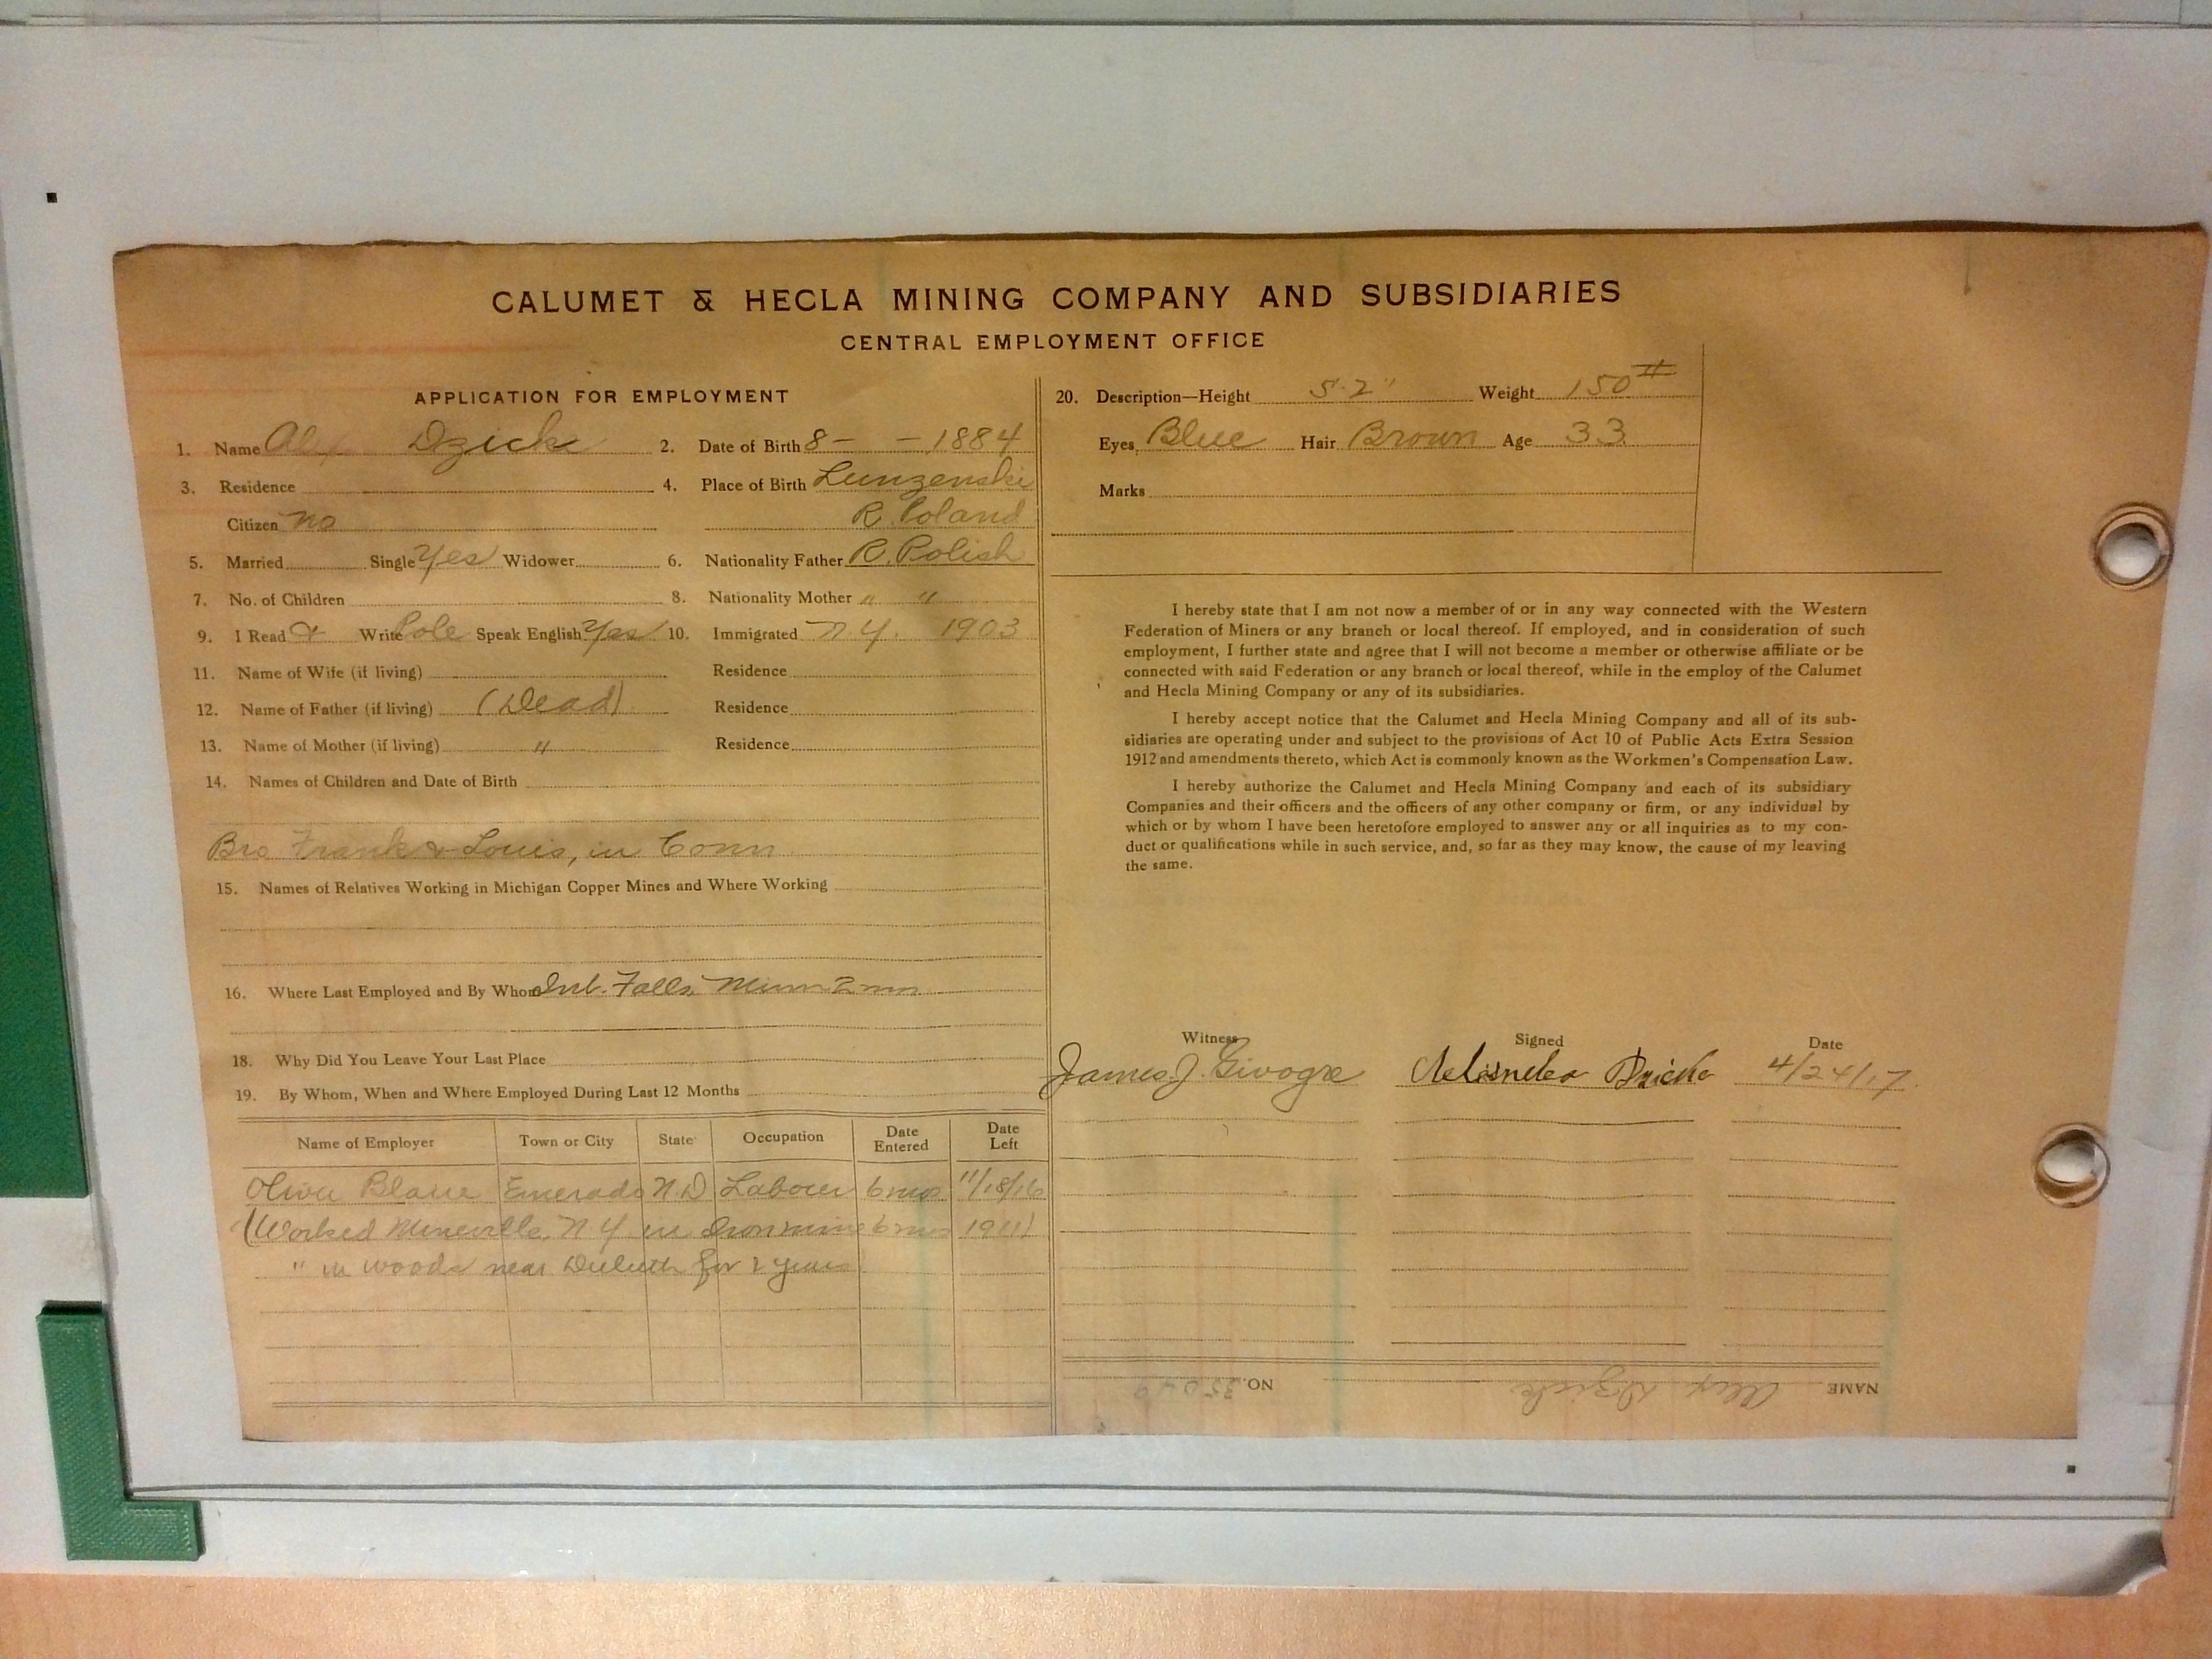 CALUMET & HECLA MINING COMPANY AND SUBSIDIARIES
CENTRAL EMPLOYMENT OFFICE
APPLICATION FOR EMPLOYMENT
1. Name Alex Dzick 2. Date of Birth 8 – – 1884
3. Residence 4. Place of Birth Lunzenski
Citizen no R. Poland
5. Married Single Yes Widower 6. Nationality Father R. Polish
7. No. of Children 8. Nationality Mother " "
9. I Read & Write Pole Speak English Yes 10. Immigrated N.Y. 1903
11. Name of Wife (if living) Residence
12. Name of Father (if living) (Dead) Residence
13. Name of Mother (if living) " Residence
14. Names of Children and Date of Birth
Bro Frank & Louis, in Conn
15. Names of Relatives Working in Michigan Copper Mines and Where Working
16. Where Last Employed and By Whom Int. Falls, Minn 2 mo
18. Why Did You Leave Your Last Place
19. By Whom, When and Where Employed During Last 12 Months
Name of Employer Town or City State Occupation Date Entered Date Left
Emerado N.D Laborer 6 mos 11/18/16
(Worked Mineville, N Y in Iron mine 6 mos 1911)
" in woods near Duluth for 2 years
20. Description—Height 5' 2" Weight 150 #
Eyes Blue Hair Brown Age 33
Marks
I hereby state that I am not now a member of or in any way connected with the Western
Federation of Miners or any branch or local thereof. If employed, and in consideration of such
employment, I further state and agree that I will not become a member or otherwise affiliate or be
connected with said Federation or any branch or local thereof, while in the employ of the Calumet
and Hecla Mining Company or any of its subsidiaries.
I hereby accept notice that the Calumet and Hecla Mining Company and all of its sub-
sidiaries are operating under and subject to the provisions of Act 10 of Public Acts Extra Session
1912 and amendments thereto, which Act is commonly known as the Workmen's Compensation Law.
I hereby authorize the Calumet and Hecla Mining Company and each of its subsidiary
Companies and their officers and the officers of any other company or firm, or any individual by
which or by whom I have been heretofore employed to answer any or all inquiries as to my con-
duct or qualifications while in such service, and, so far as they may know, the cause of my leaving
the same.
Witness Signed Date
James J. 4/24/17
NAME Alex Dzick NO.